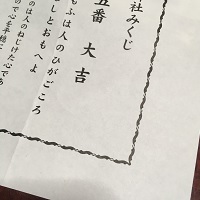 社みくじ
五番 大吉
もふは人のひがごころ
しとおもへよ
のは人のねじけた心であ
ので心を平穏に